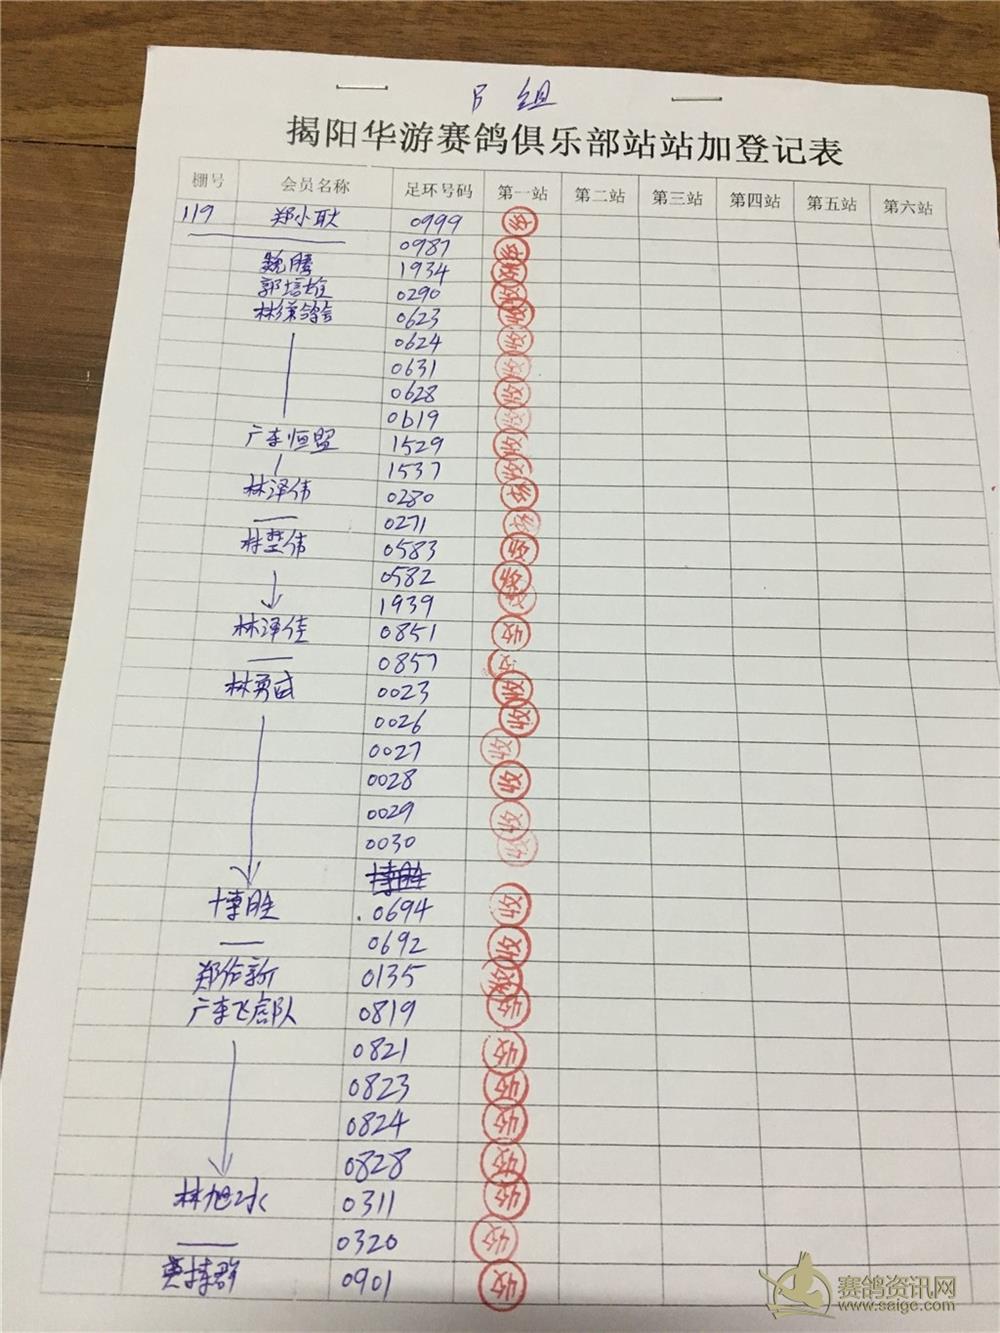 B 组
揭阳华游赛鸽俱乐部站站加登记表
棚号 会员名称 足环号码 第一站 第二站 第三站 第四站 第五站 第六站
119 郑小耿 0999 收
0987 收
魏腾 1934 收
郭培雄 0290 收
0623 收
0624 收
0631 收
0628 收
0619 收
广东恒盟 1529 收
1537 收
林泽伟 0280 收
0271 收
林楚伟 0583 收
0582 收
1939 收
林泽佳 0851 收
0857 收
林勇武 0023 收
0026 收
0027 收
0028 收
0029 收
0030 收
博胜
博胜 0694 收
0692 收
0135 收
广东飞虎队 0819 收
0821 收
0823 收
0824 收
0828 收
林旭冰 0311 收
0320 收
0901 收
赛鸽资讯网
www.saige.com